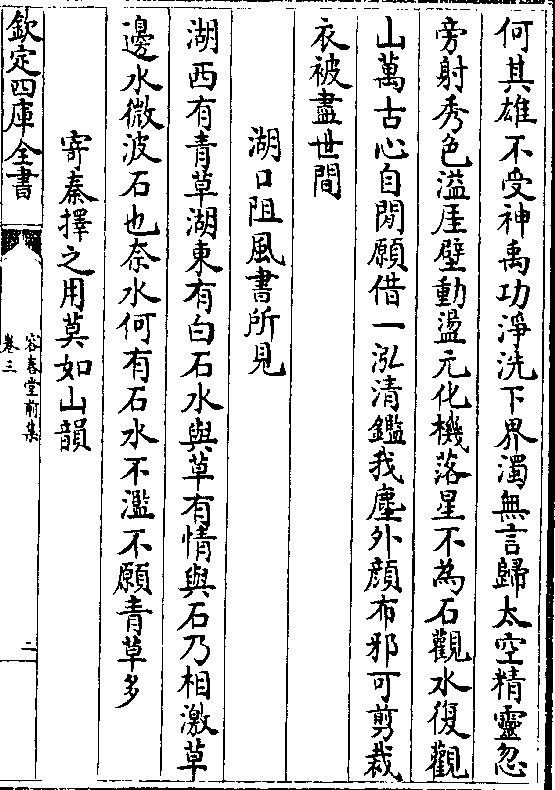 何其雄不受神禹功淨洗下界濁無言歸太空精靈忽
旁射秀色溢厓壁動盪元化機落星不為石觀水復觀
山萬古心自閒願借一泓清鑑我塵外顔布邪可剪裁
衣被盡世間
湖口阻風書所見
湖西有青草湖東有白石水與草有情與石乃相激草
邊水微波石也奈水何有石水不濫不願青草多
寄秦擇之用莫如山韻
欽定四庫全書
容春堂前集
卷三
二